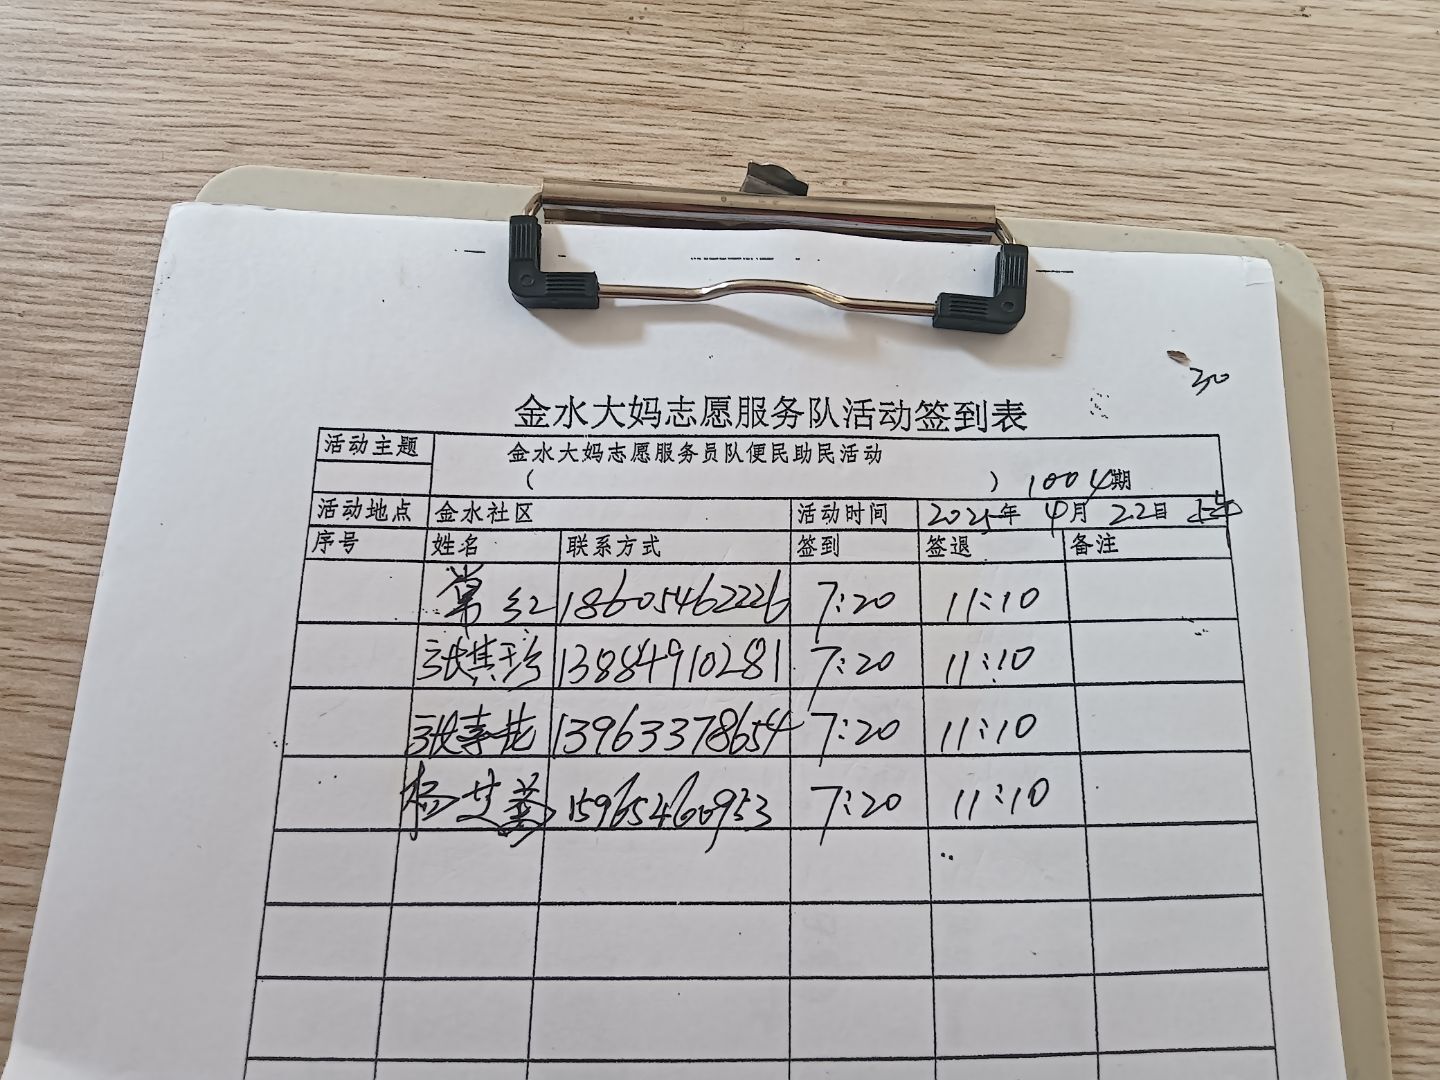 30
金水大妈志愿服务队活动签到表
活动主题 金水大妈志愿服务员队便民助民活动
( ) 1004期
活动地点 金水社区 活动时间 2025年 4月 22日 上午
序号 姓名 联系方式 签到 签退 备注
常红 18605462226 7:20 11:10
张其珍 13884910281 7:20 11:10
张春花 13963378654 7:20 11:10
杨艾 15965460953 7:20 11:10